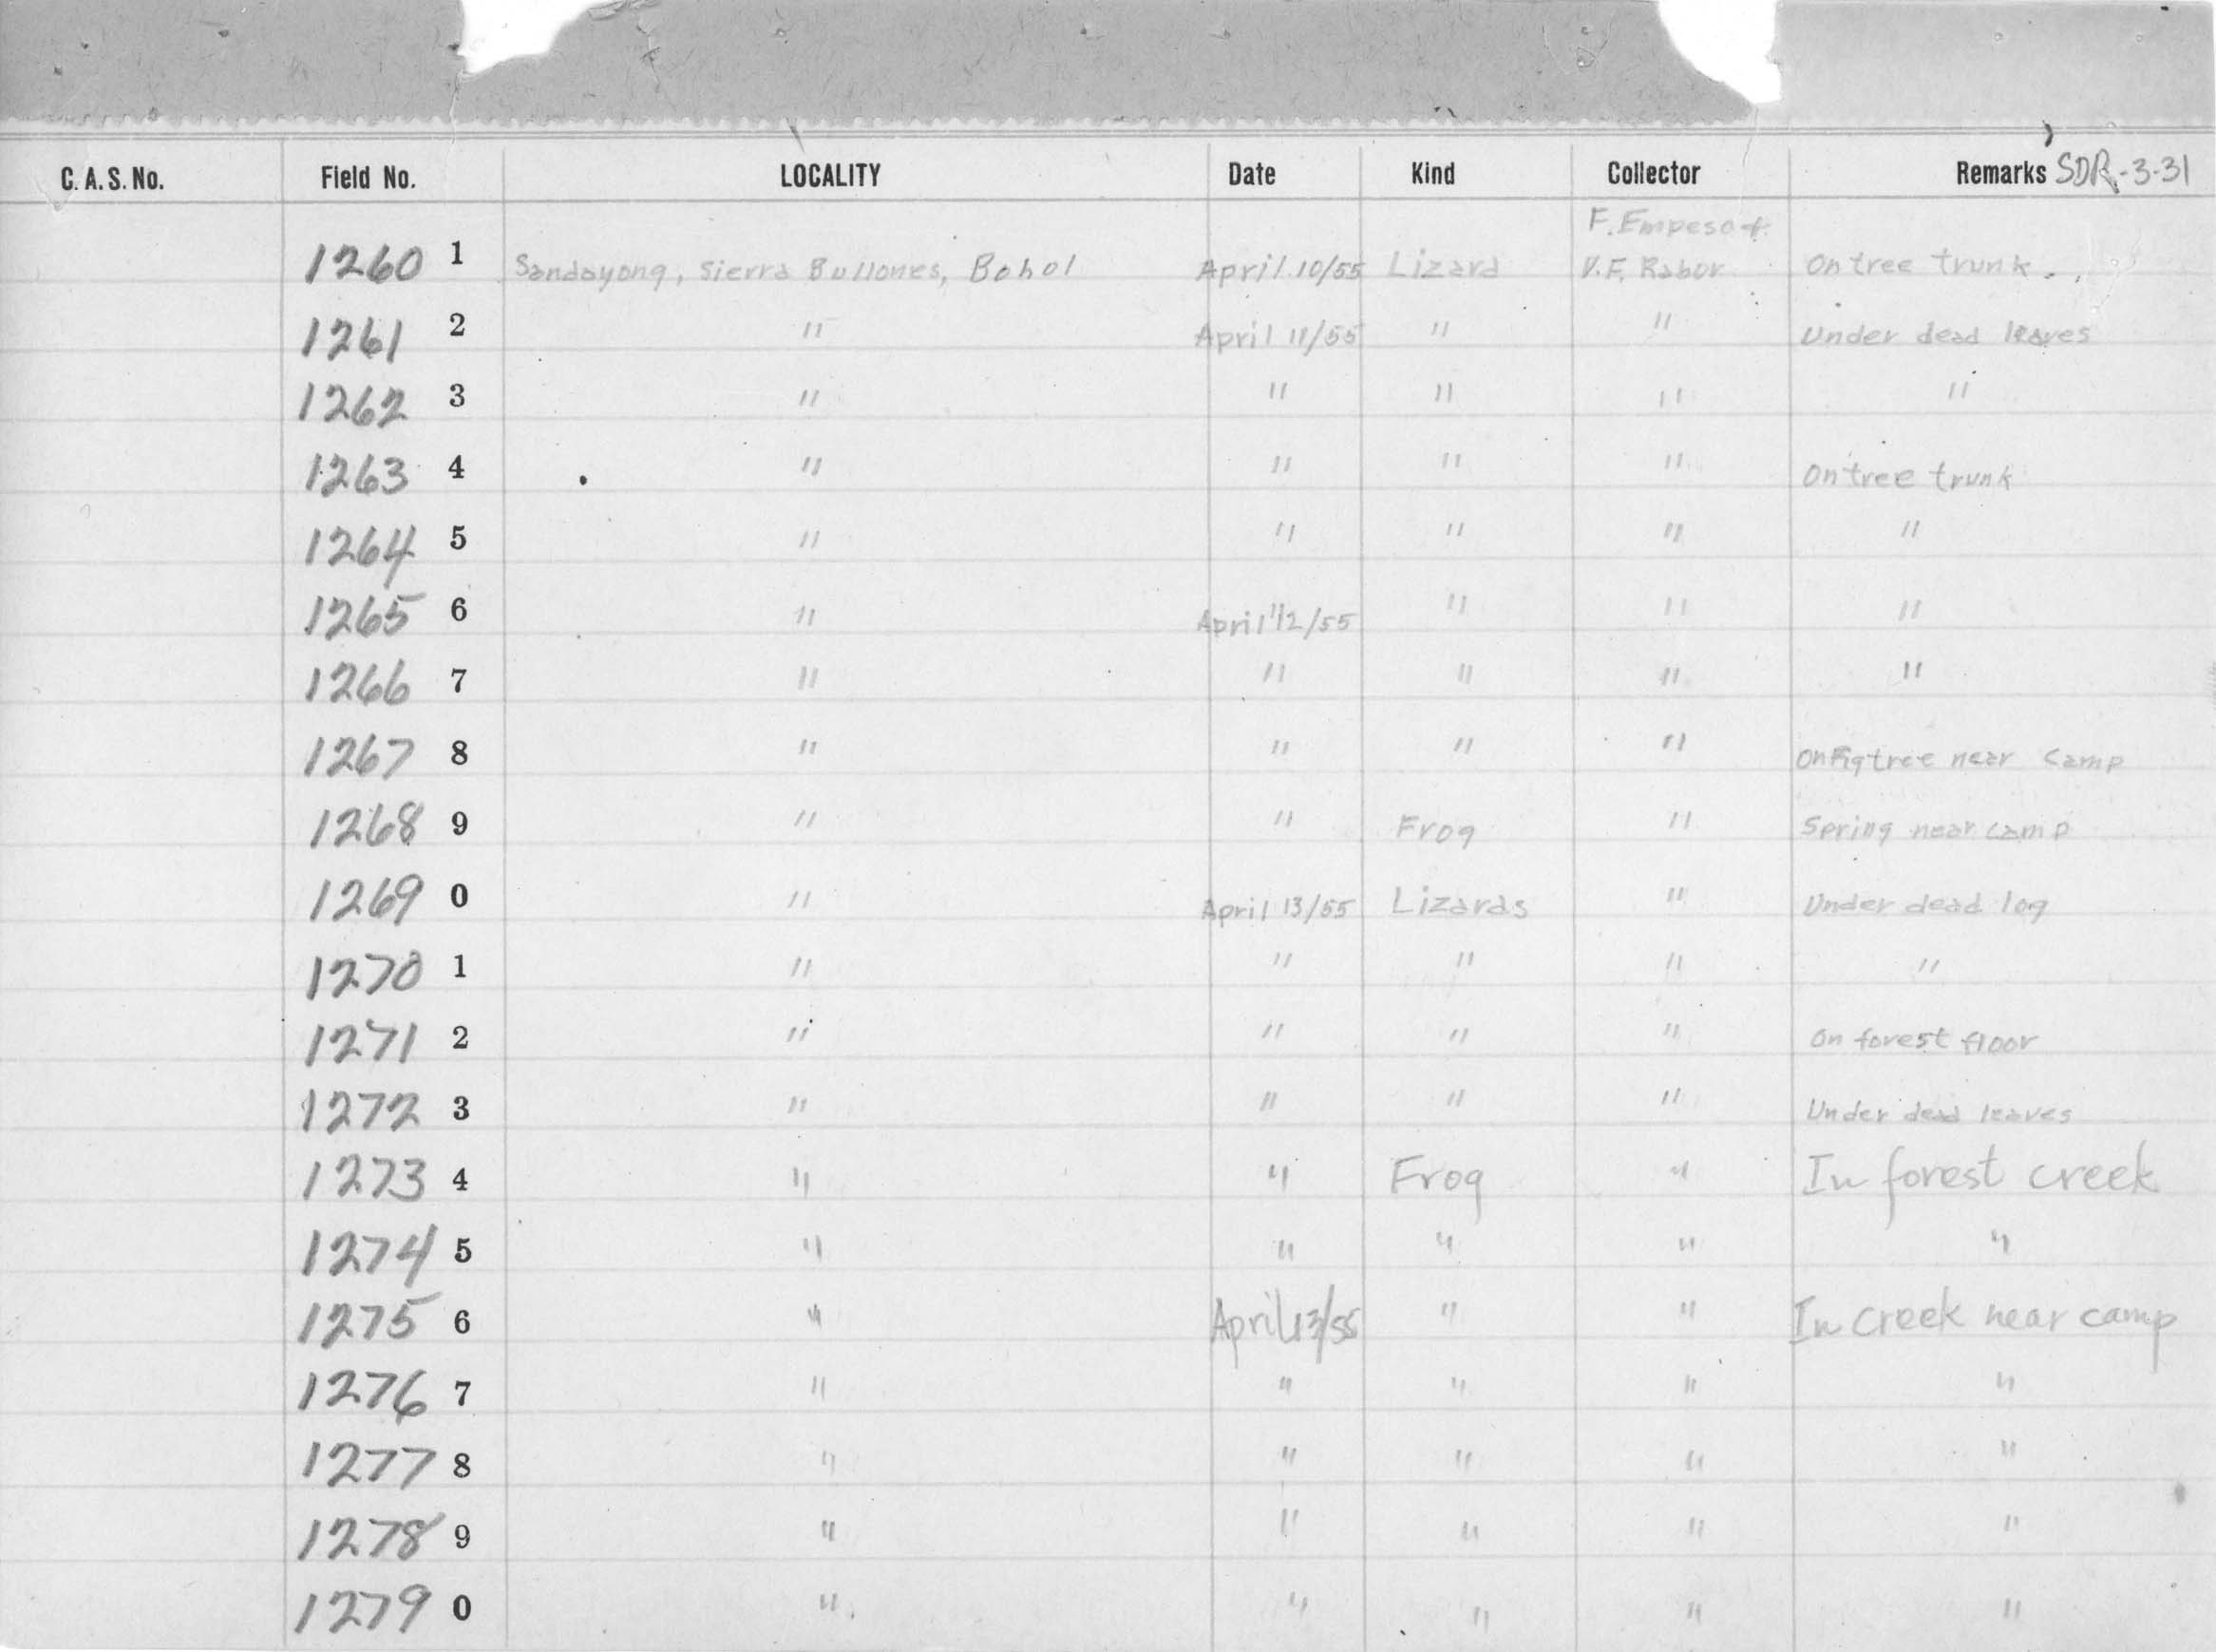 C.A.S. No. Field No. LOCALITY Date Kind Collector Remarks SDR-3-31
F. Empeso &
1260 1 Sandayong, Sierra Bullones, Bohol April 10/55 Lizard D.F. Rabor On tree trunk.
1261 2 " April 11/55 " " Under dead leaves
1262 3 " " " " "
1263 4 " " " " On tree trunk
1264 5 " " " " "
1265 6 " April 12/55 " " "
1266 7 " " " " "
1267 8 " " " " On Fig tree near camp
1268 9 " " Frog " Spring near camp
1269 0 " April 13/55 Lizards " Under dead log
1270 1 " " " " "
1271 2 " " " " On forest floor
1272 3 " " " " Under dead leaves
1273 4 " " Frog " In forest creek
1274 5 " " " " "
1275 6 " April 13/55 " " In creek near camp
1276 7 " " " " "
1277 8 " " " " "
1278 9 " " " " "
1279 0 " " " " "